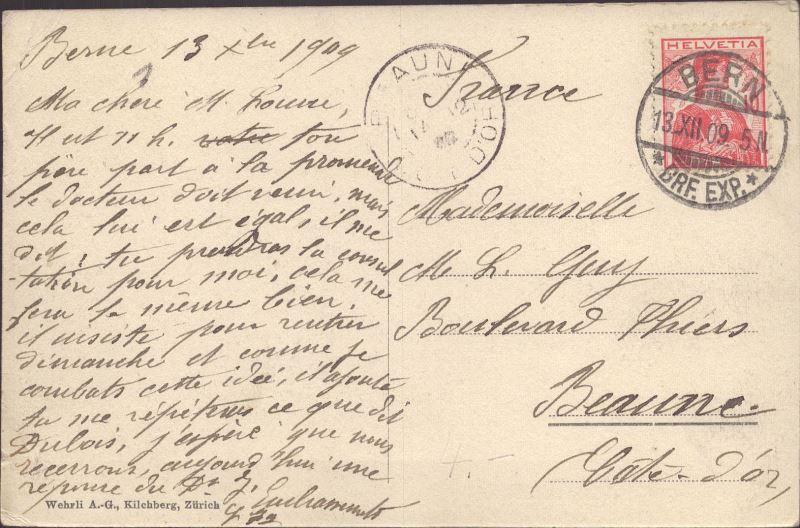 Berne 13 Xbre 1909
Ma chère M. Louise,
Il est 11 h. votre ton
père part à la promenade
le docteur doit venir, mais
cela lui est égal, il me
dit : tu prendras la consul
tation pour moi, cela me
fera le même bien.
il insiste pour rentrer
dimanche et comme je
combats cette idée, il ajoute
tu me répèteras ce que dit
Dubois, j'espère que nous
recevrons, aujourd'hui une
réponse du Dr J.
Wehrli A.-G., Kilchberg, Zürich
BEAUNE
CÔTE D'OR
France
HELVETIA
BERN
13.XII.09. 5
* BRF. EXP. *
Mademoiselle
M. L. Guy
Boulevard Thiers
Beaune.
Côte-d'or,